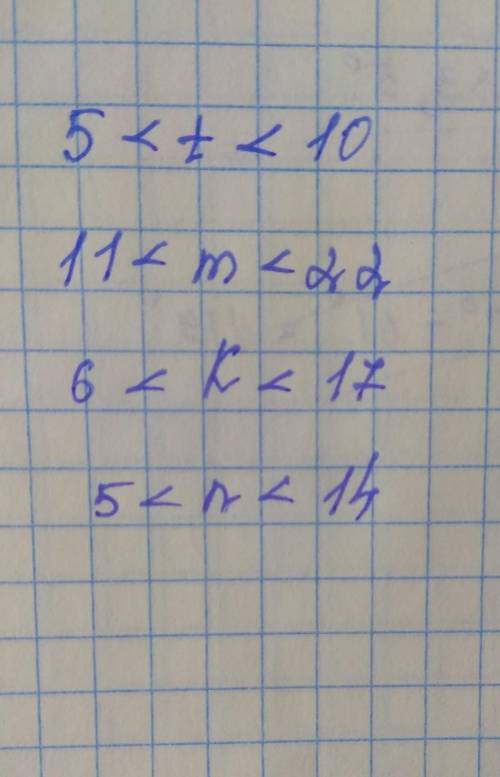 5 < t < 10
11 < m < 22
6 < K < 17
5 < n < 14